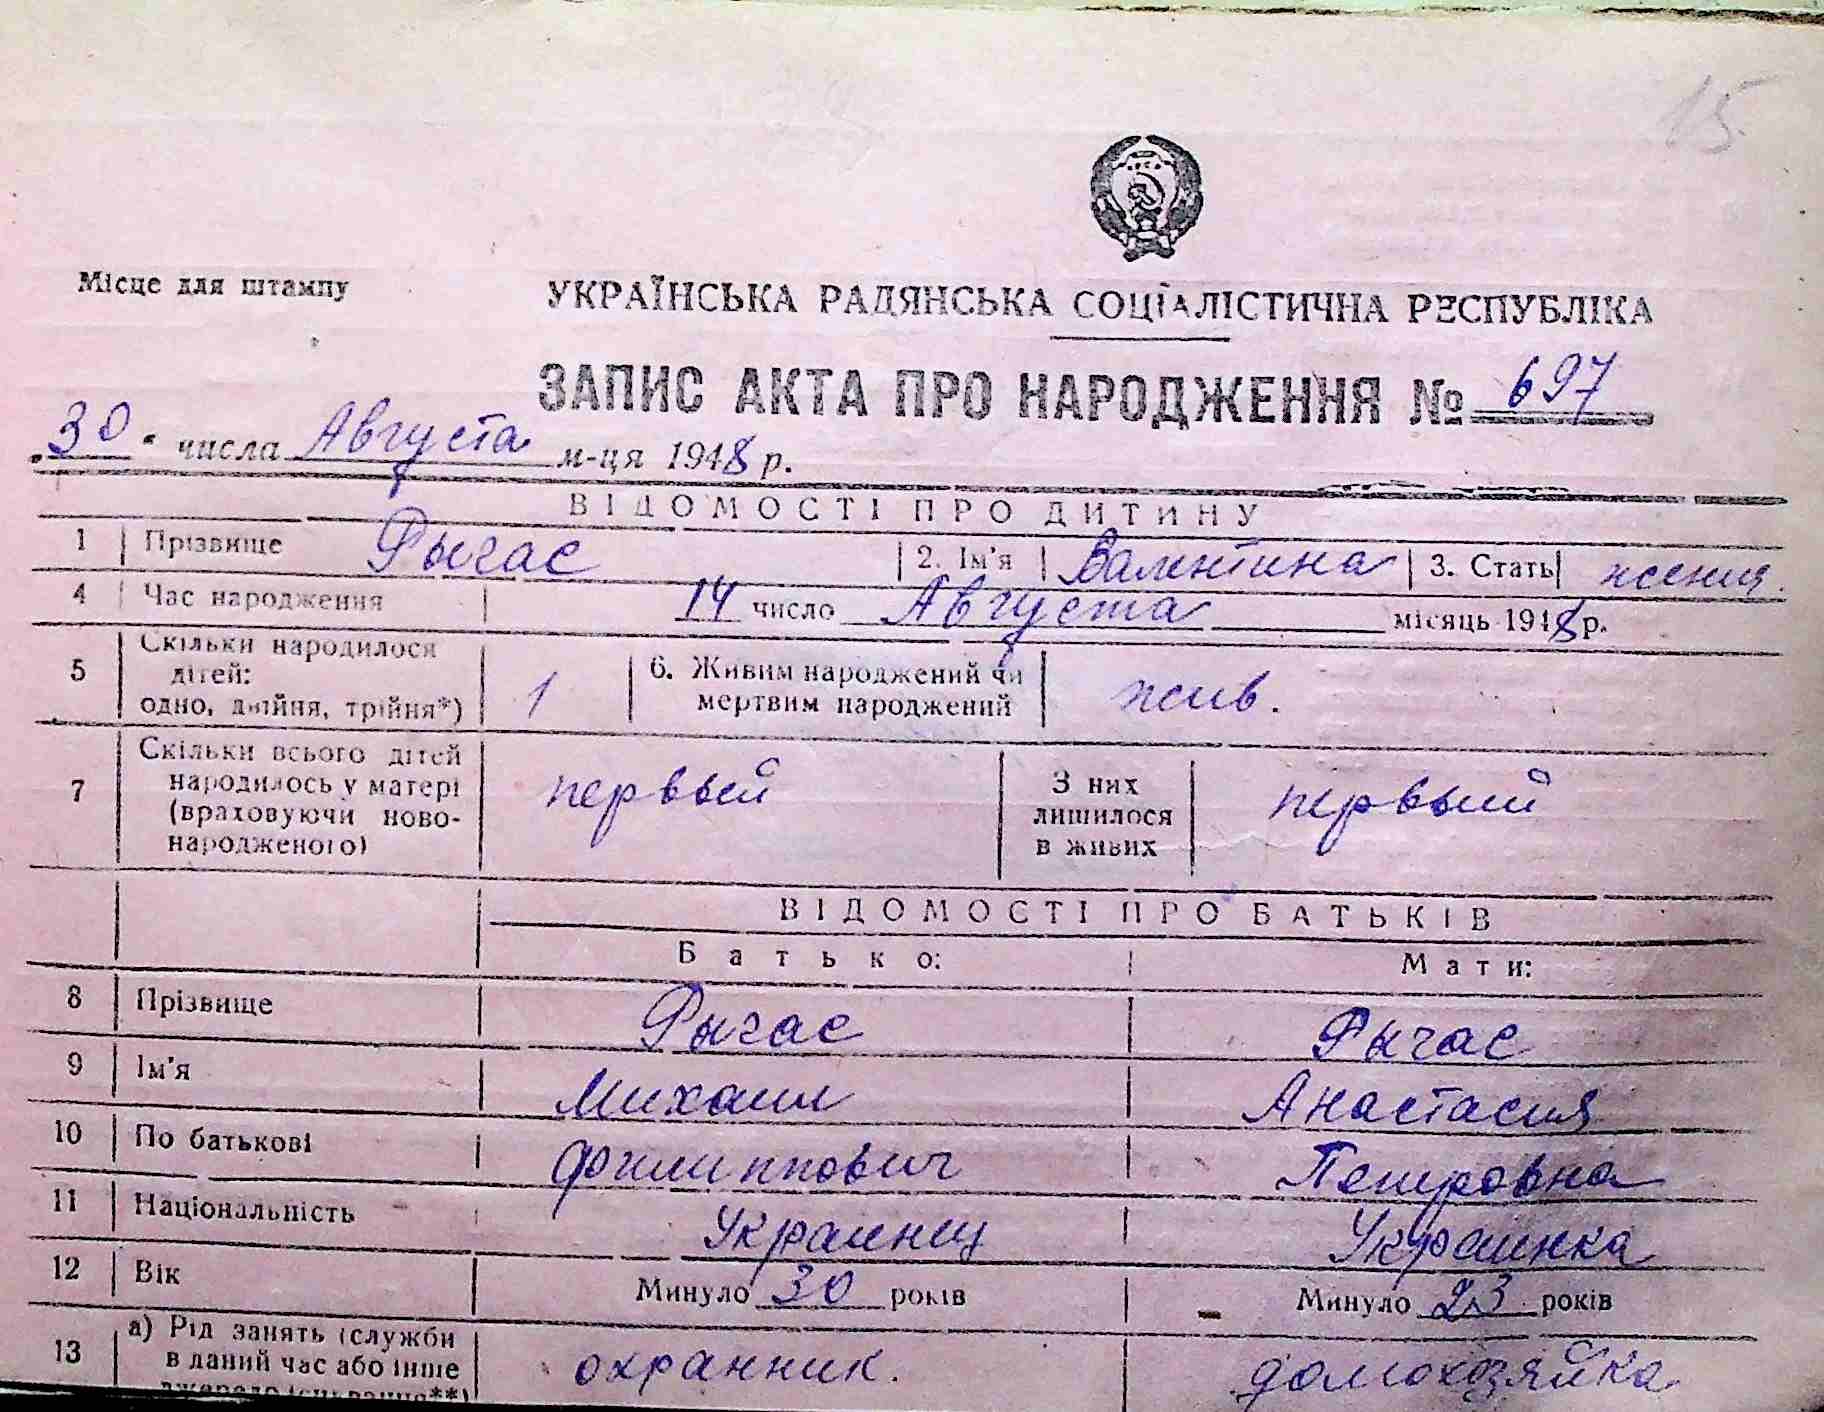 15
Місце для штампу
УКРАЇНСЬКА РАДЯНСЬКА СОЦІАЛІСТИЧНА РЕСПУБЛІКА
ЗАПИС АКТА ПРО НАРОДЖЕННЯ № 697
„30“ числа Августа м-ця 1948 р.
ВІДОМОСТІ ПРО ДИТИНУ
1 Прізвище Рычас 2. Ім'я Валентина 3. Стать женщ.
4 Час народження 14 число Августа місяць 1948 р.
5 Скільки народилося дітей: одно, двійня, трійня*) 1 6. Живим народжений чи мертвим народжений жив.
7 Скільки всього дітей народилось у матері (враховуючи ново-народженого) первый З них лишилося в живих первый
ВІДОМОСТІ ПРО БАТЬКІВ
Батько: Мати:
8 Прізвище Рычас Рычас
9 Ім'я Михаил Анастасия
10 По батькові Филиппович Петровна
11 Національність Украинец Украинка
12 Вік Минуло 30 років Минуло 23 років
13 а) Рід занять (служби в даний час або інше охранник. домохозяйка